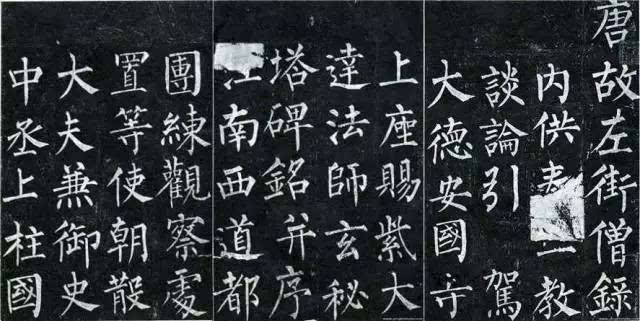 唐故左街僧錄
內供教
談論引駕
大德安國寺
上座賜紫大
達法師玄秘
塔碑銘并序
江南西道都
團練觀察處
置等使朝散
大夫兼御史
中丞上柱國